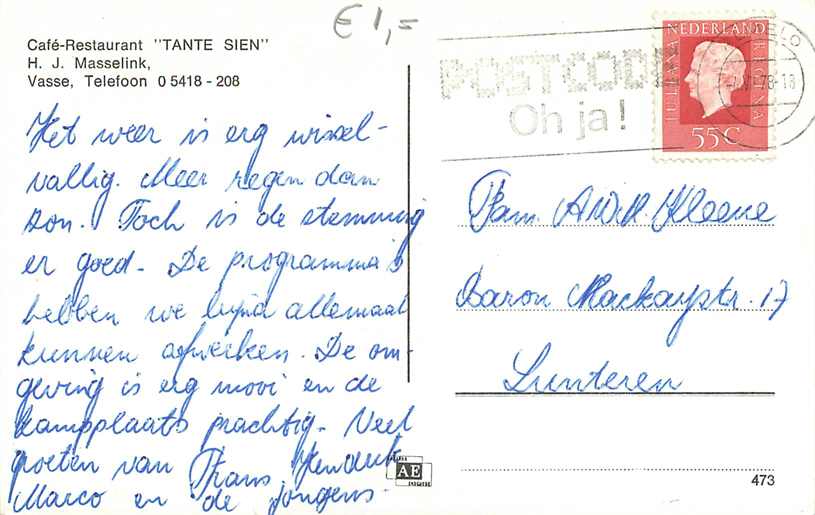 € 1,=
Café-Restaurant "TANTE SIEN"
H. J. Masselink,
Vasse, Telefoon 0 5418 - 208
POSTCODE
Oh ja!
NEDERLAND
JULIANA
REGINA
55C
78-18
Het weer is erg wissel-
vallig. Meer regen dan
zon. Toch is de stemming
er goed. De programma's
hebben we bijna allemaal
kunnen afwerken. De om-
geving is erg mooi en de
kampplaats prachtig. Veel
groeten van Frans, Henduk
Marco en de jongens.
Fam. A.W.R. Kleene
Baron Mackaystr. 17
Lunteren
AE
473